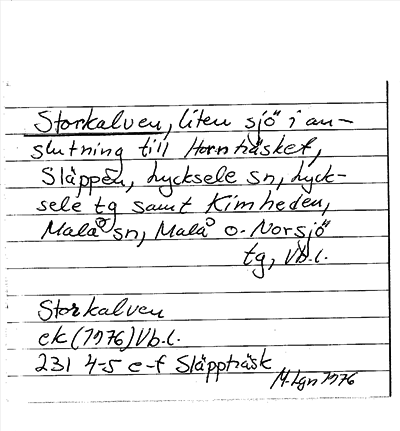 Storkalven, liten sjö i an-
slutning till Hornträsket,
Släppen, Lycksele sn, Lyck-
sele tg samt Kimheden,
Malå sn, Malå o. Norsjö
tg, Vb.l.
Storkalven
ek (1976) Vb.l.
231 4-5 e-f Släppträsk
M. Lgn 1976